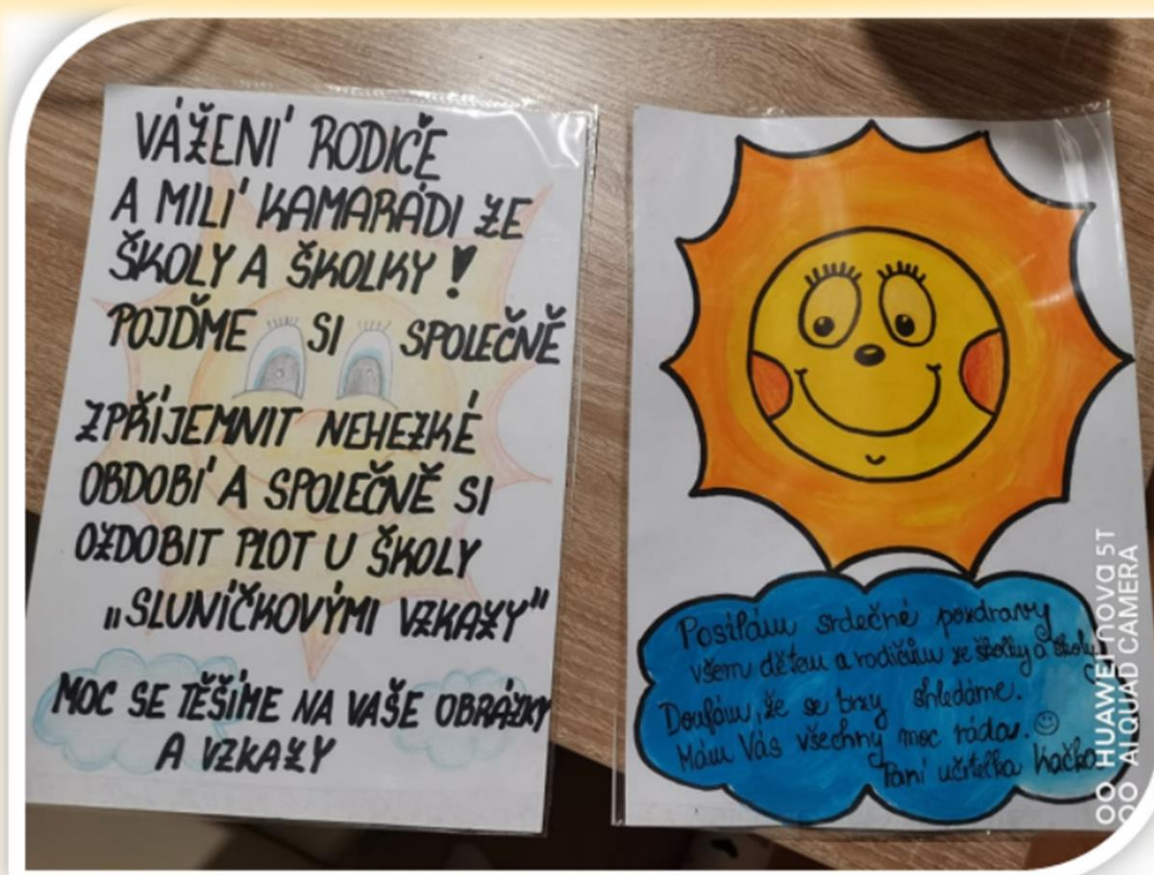 VÁŽENÍ RODIČE
A MILÍ KAMARÁDI ZE
ŠKOLY A ŠKOLKY!
POJĎME SI SPOLEČNĚ
ZPŘÍJEMNIT NEHEZKÉ
OBDOBÍ A SPOLEČNĚ SI
OZDOBIT PLOT U ŠKOLY
„SLUNÍČKOVÝMI VZKAZY"
MOC SE TĚŠÍME NA VAŠE OBRÁZKY
A VZKAZY
Posílám srdečné pozdravy
všem dětem a rodičům ze školky a školy
Doufám, že se brzy shledáme.
Mám Vás všechny moc ráda. ☺
Paní učitelka Kačka
HUAWEI nova 5T
AI QUAD CAMERA